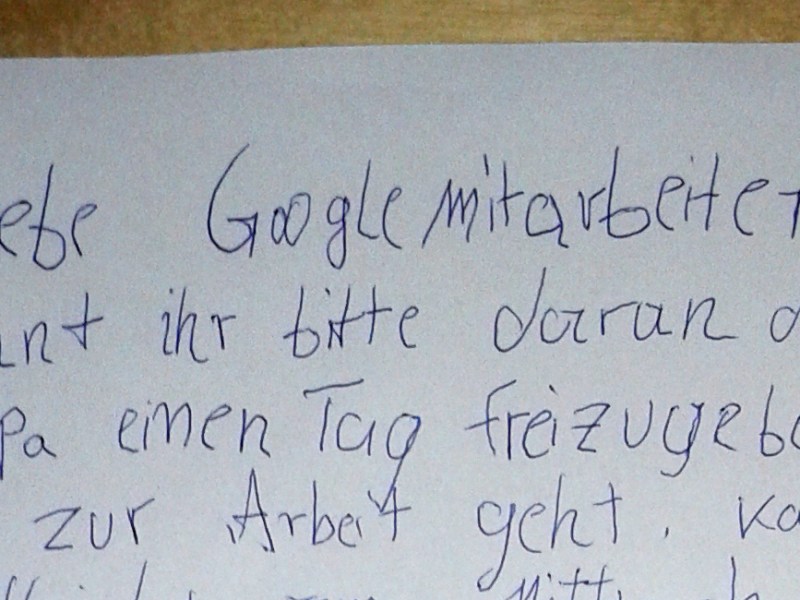 ebe Google mitarbeiter
nnt ihr bitte daran d
pa einen Tag freizugebe
zur Arbeit geht. Ka